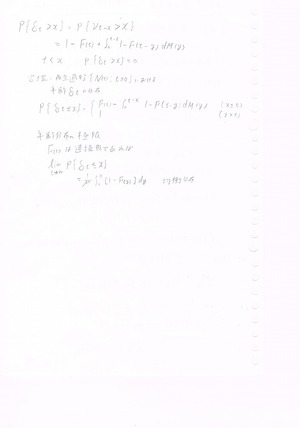 P{δt>x} = P{γt-x>x}
= 1-F(t)+∫₀^{t-x} 1-F(t-y) dM(y)
t<x P{δt>x}=0
再生過程 {N(t), t≥0} における
年齢 δt の分布
P{δt≤x} = { F(t)-∫₀^{t-x} 1-F(t-y) dM(y) (x≤t)
1 (x>t)
年齢分布の極限
F(t) は連続型であれば
lim P{δt≤x}
t→∞
= 1/μ ∫₀^x [1-F(y)] dy 均衡分布